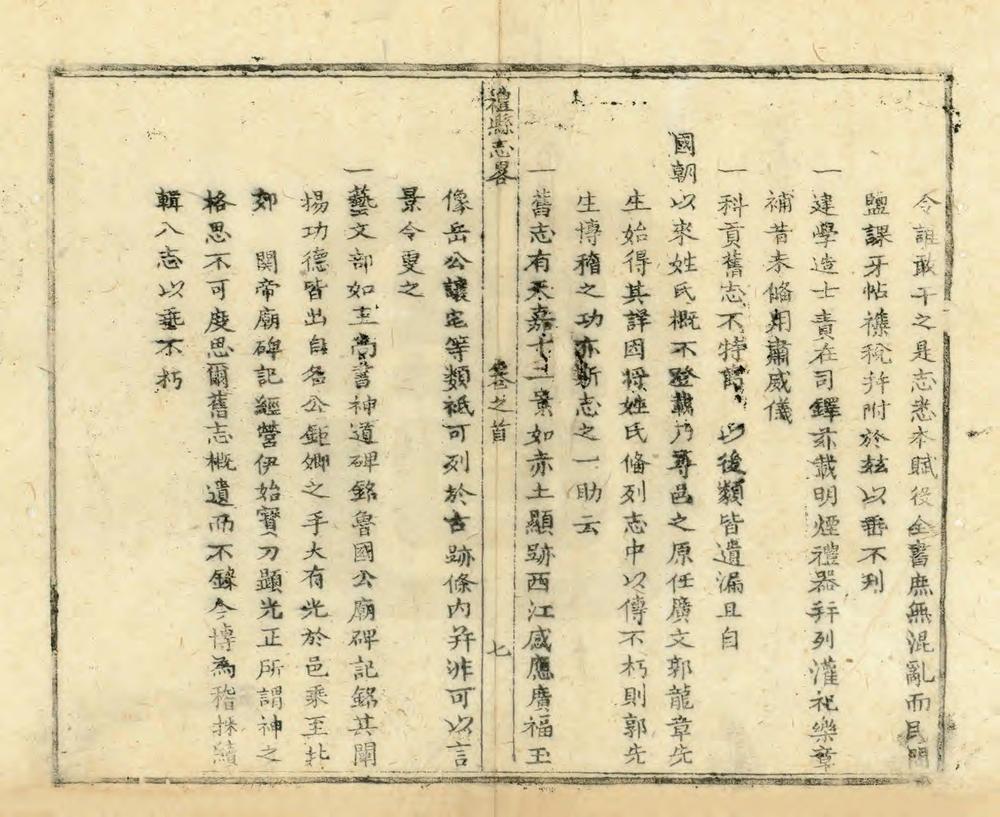 令誰敢干之是志悉本賦役全書庶無混亂而民間
鹽課牙帖襍稅并附於玆以垂不刋
一建學造士責在司鐸亦載明煙禮器并列灌祀樂章
補昔未俻用肅威儀
一科貢舊志不特 以後類皆遺漏且自
國朝以來姓氏概不登載乃尊邑之原任廣文郭龍章先
生始得其譯因将姓氏俻列志中以傳不朽則郭先
生博稽之功亦新志之一助云
禮縣志畧 卷之首 七
一舊志有天嘉十二景如赤土顯跡西江感應廣福玉
像岳公讓宅等類袛可列於古跡條内并非可以言
景令更之
一藝文部如王尚書神道碑銘魯國公廟碑記銘其闡
揚功德皆出自名公鉅卿之手大有光於邑乘至北
郊 関帝廟碑記經營伊始寳刀顯光正所謂神之
格思不可度思爾舊志概遺而不錄今博為稽採續
輯八志以垂不朽